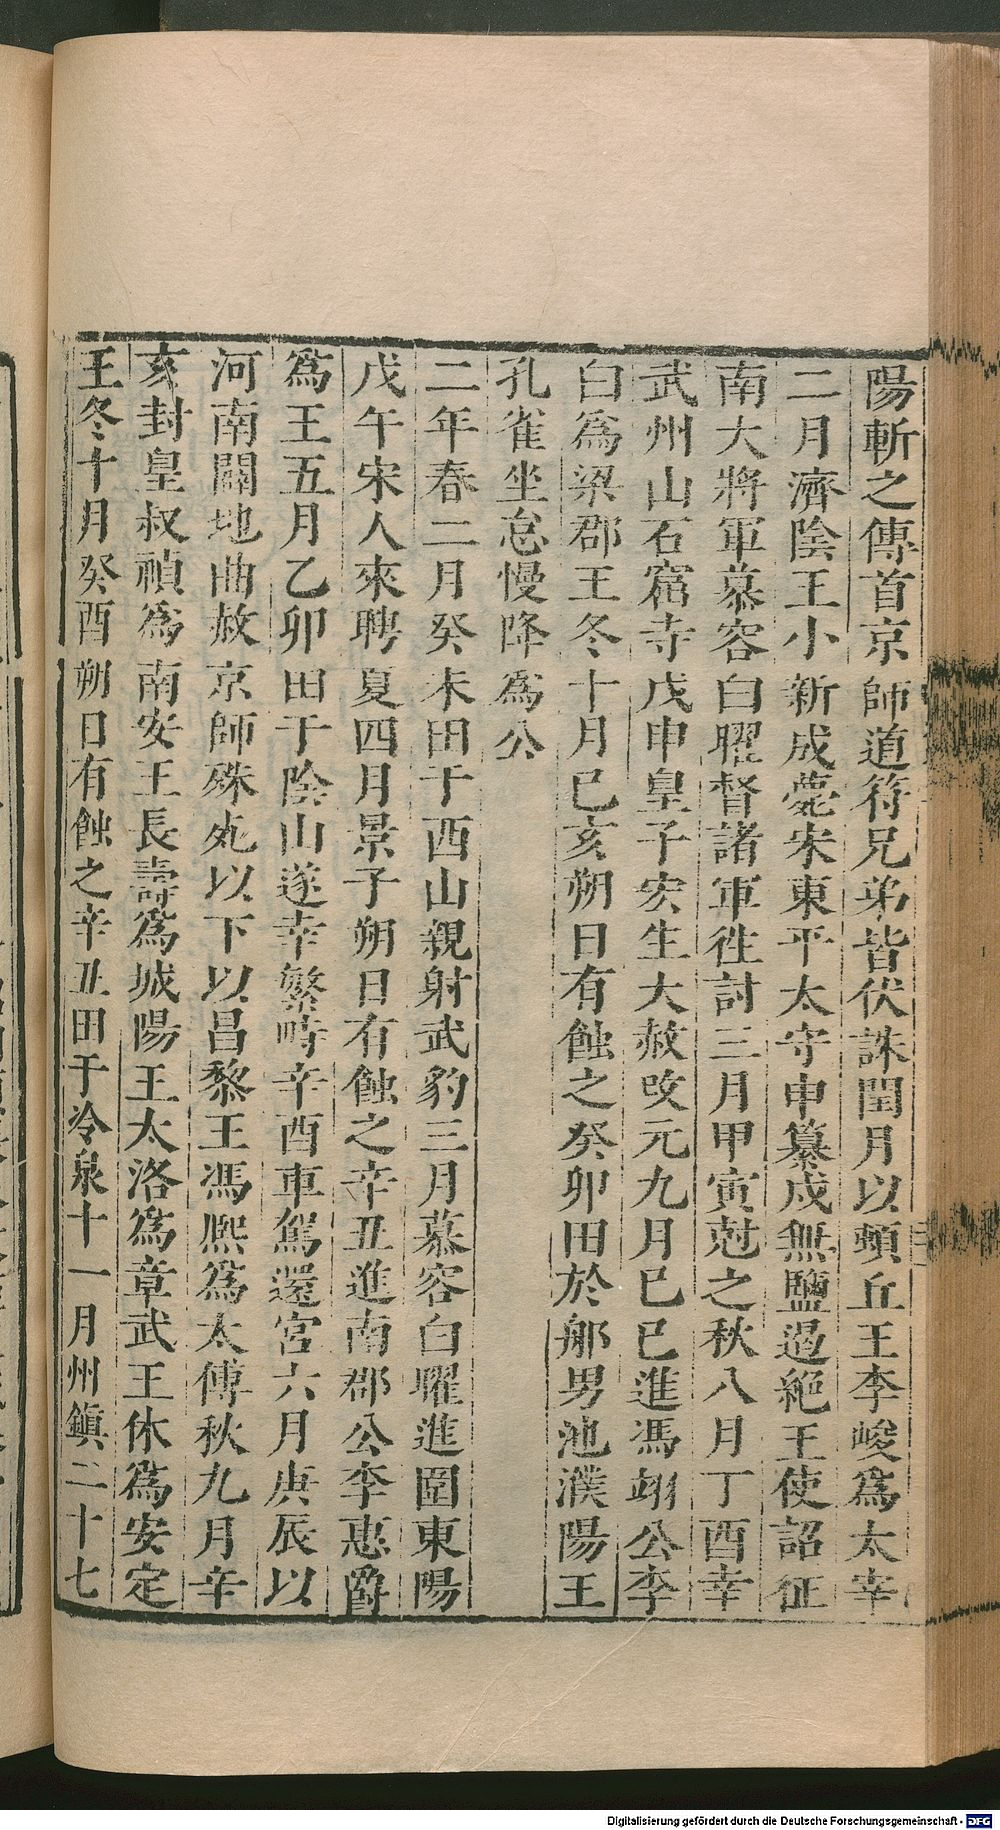 陽斬之傳首京師道符兄弟皆伏誅閏月以頓丘王李峻爲太宰
二月濟陰王小新成薨宋東平太守申纂戍無鹽遏絶王使詔征
南大將軍慕容白曜督諸軍徃討三月甲寅尅之秋八月丁酉幸
武州山石窟寺戊申皇子宏生大赦攺元九月巳巳進馮翊公李
白爲梁郡王冬十月巳亥朔日有蝕之癸卯田於郍男池濮陽王
孔雀坐怠慢降爲公
二年春二月癸未田于西山親射武豹三月慕容白曜進圍東陽
戊午宋人來聘夏四月景子朔日有蝕之辛丑進南郡公李惠爵
爲王五月乙卯田于陰山遂幸繁畤辛酉車駕還宮六月庚辰以
河南闢地曲赦京師殊死以下以昌黎王馮熙爲太傅秋九月辛
亥封皇叔禎爲南安王長壽爲城陽王太洛爲章武王休爲安定
王冬十月癸酉朔日有蝕之辛丑田于冷泉十一月州鎮二十七
Digitalisierung gefördert durch die Deutsche Forschungsgemeinschaft - DFG